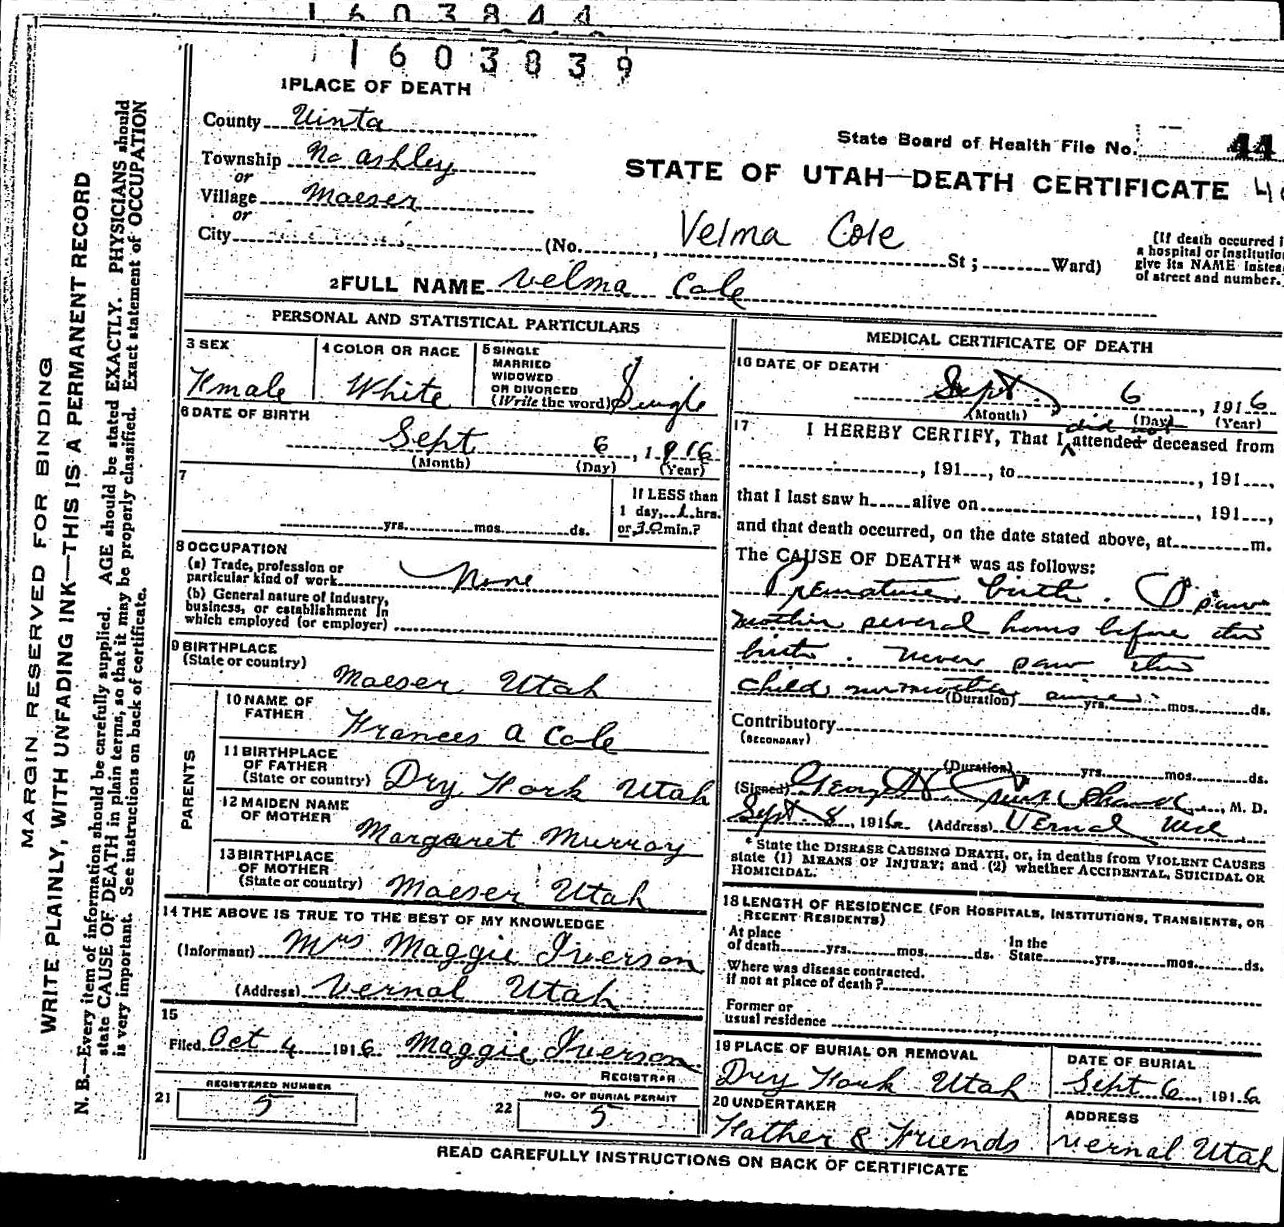 1603844
1603839
1 PLACE OF DEATH
County Uinta
Township No Ashley
or
Village Maeser
or
City (No. , St; Ward)
State Board of Health File No. 44
STATE OF UTAH—DEATH CERTIFICATE
Velma Cole
(If death occurred i
a hospital or institutio
give its NAME instea
of street and number.
2 FULL NAME Velma Cole
PERSONAL AND STATISTICAL PARTICULARS
3 SEX
Fmale
4 COLOR OR RACE
White
5 SINGLE
MARRIED
WIDOWED
OR DIVORCED
(Write the word) Single
6 DATE OF BIRTH
Sept 6, 1916
(Month) (Day) (Year)
7
yrs. mos. ds.
If LESS than
1 day, 1 hrs.
or 30 min.?
8 OCCUPATION
(a) Trade, profession or
particular kind of work None
(b) General nature of industry,
business, or establishment in
which employed (or employer)
9 BIRTHPLACE
(State or country)
Maeser Utah
PARENTS
10 NAME OF
FATHER Frances A Cole
11 BIRTHPLACE
OF FATHER
(State or country) Dry Fork Utah
12 MAIDEN NAME
OF MOTHER Margaret Murray
13 BIRTHPLACE
OF MOTHER
(State or country) Maeser Utah
14 THE ABOVE IS TRUE TO THE BEST OF MY KNOWLEDGE
(Informant) Mrs Maggie Iverson
(Address) Vernal Utah
15
Filed Oct 4 1916 Maggie Iverson
REGISTRAR
REGISTERED NUMBER
21 5
NO. OF BURIAL PERMIT
22 5
MEDICAL CERTIFICATE OF DEATH
16 DATE OF DEATH
Sept 6, 1916
(Month) (Day) (Year)
17 I HEREBY CERTIFY, That I did not attended deceased from
, 191 , to , 191 ,
that I last saw h alive on , 191 ,
and that death occurred, on the date stated above, at m.
The CAUSE OF DEATH* was as follows:
Premature birth. I saw
mother several hours before the
birth. Never saw the
child nor mother since.
(Duration) yrs. mos. ds.
Contributory
(SECONDARY)
(Duration) yrs. mos. ds.
(Signed) , M. D.
Sept. 8, 1916 (Address) Vernal
* State the DISEASE CAUSING DEATH, or, in deaths from VIOLENT CAUSES
state (1) MEANS OF INJURY; and (2) whether ACCIDENTAL, SUICIDAL OR
HOMICIDAL.
18 LENGTH OF RESIDENCE (FOR HOSPITALS, INSTITUTIONS, TRANSIENTS, OR
RECENT RESIDENTS)
At place
of death yrs. mos. ds.
In the
State yrs. mos. ds.
Where was disease contracted.
if not at place of death?
Former or
usual residence
19 PLACE OF BURIAL OR REMOVAL
Dry Fork Utah
DATE OF BURIAL
Sept 6, 1916
20 UNDERTAKER
Father & Friends
ADDRESS
Vernal Utah
READ CAREFULLY INSTRUCTIONS ON BACK OF CERTIFICATE
MARGIN RESERVED FOR BINDING
WRITE PLAINLY, WITH UNFADING INK—THIS IS A PERMANENT RECORD
N. B.—Every item of information should be carefully supplied. AGE should be stated EXACTLY. PHYSICIANS should
state CAUSE OF DEATH in plain terms, so that it may be properly classified. Exact statement of OCCUPATION
is very important. See instructions on back of certificate.